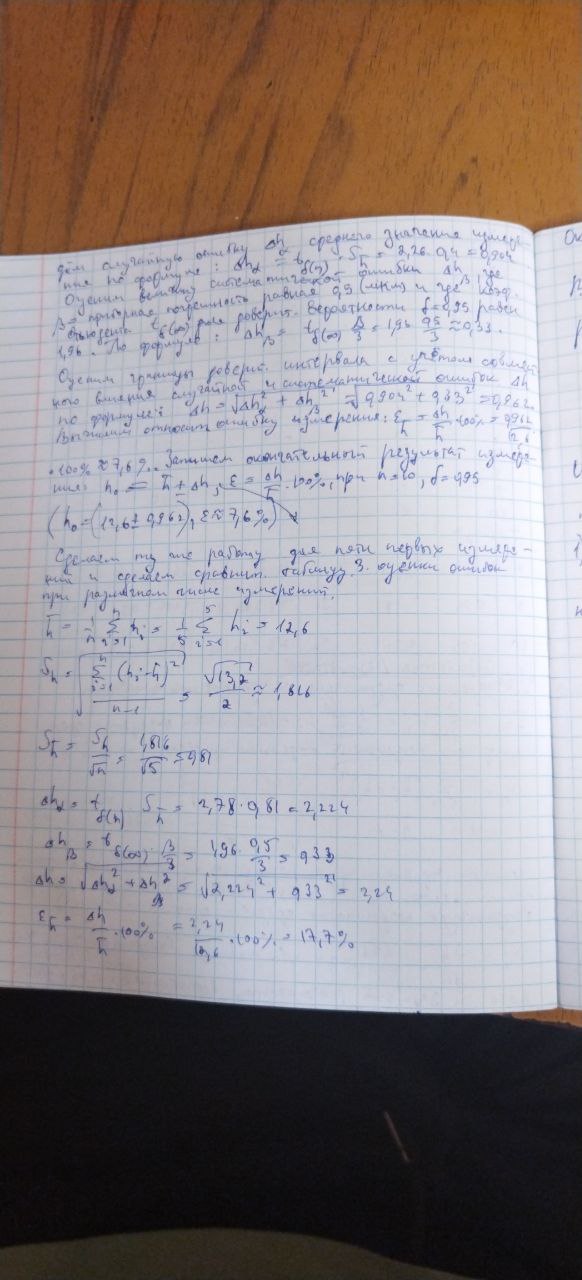 дём случайную ошибку Δh среднего значения измере-
ния по формуле: Δhα = t δ(n) · S h̄ = 2,26 · 0,4 = 0,904
Оценим величину систематической ошибки Δhβ где
β = приборная погрешность равная 0,5 (мкм) и где коэф.
t δ(∞) для доверит. вероятности δ=0,95 равен
1,96. По формуле: Δhβ = t δ(∞) β/3 = 1,96 0,5/3 ≈ 0,33.
Оценим границы доверит. интервала с учётом совмест-
ного влияния случайной и систематической ошибок Δh
по формуле: Δh = √(Δhα² + Δhβ²) = √(0,904² + 0,33²) = 0,962.
Вычислим относит. ошибку измерения: ε h̄ = Δh/h̄ · 100% = 0,962/12,6
· 100% ≈ 7,6%. Запишем окончательный результат измере-
ния: h₀ = h̄ ± Δh; ε = Δh/h̄ · 100%, при n=10, δ=0,95
(h₀ = (12,6 ± 0,962); ε ≈ 7,6%)
Сделаем ту же работу для пяти первых измере-
ний и сделаем сравнит. таблицу 3. оценки ошибок
при различном числе измерений.
h̄ = 1/n Σ i=1 n hi = 1/5 Σ i=1 5 hi = 12,6
Sh = √(Σ i=1 n (hi - h̄)² / n-1) = √13,2/2 ≈ 1,816
S h̄ = Sh/√n = 1,816/√5 ≈ 0,81
Δhα = t δ(n) S h̄ = 2,78 · 0,81 = 2,224
Δhβ = t δ(∞) · β/3 = 1,96 · 0,5/3 = 0,33
Δh = √(Δhα² + Δhβ²) = √(2,224² + 0,33²) = 2,24
ε h̄ = Δh/h̄ · 100% = 2,24/12,6 · 100% = 17,7%